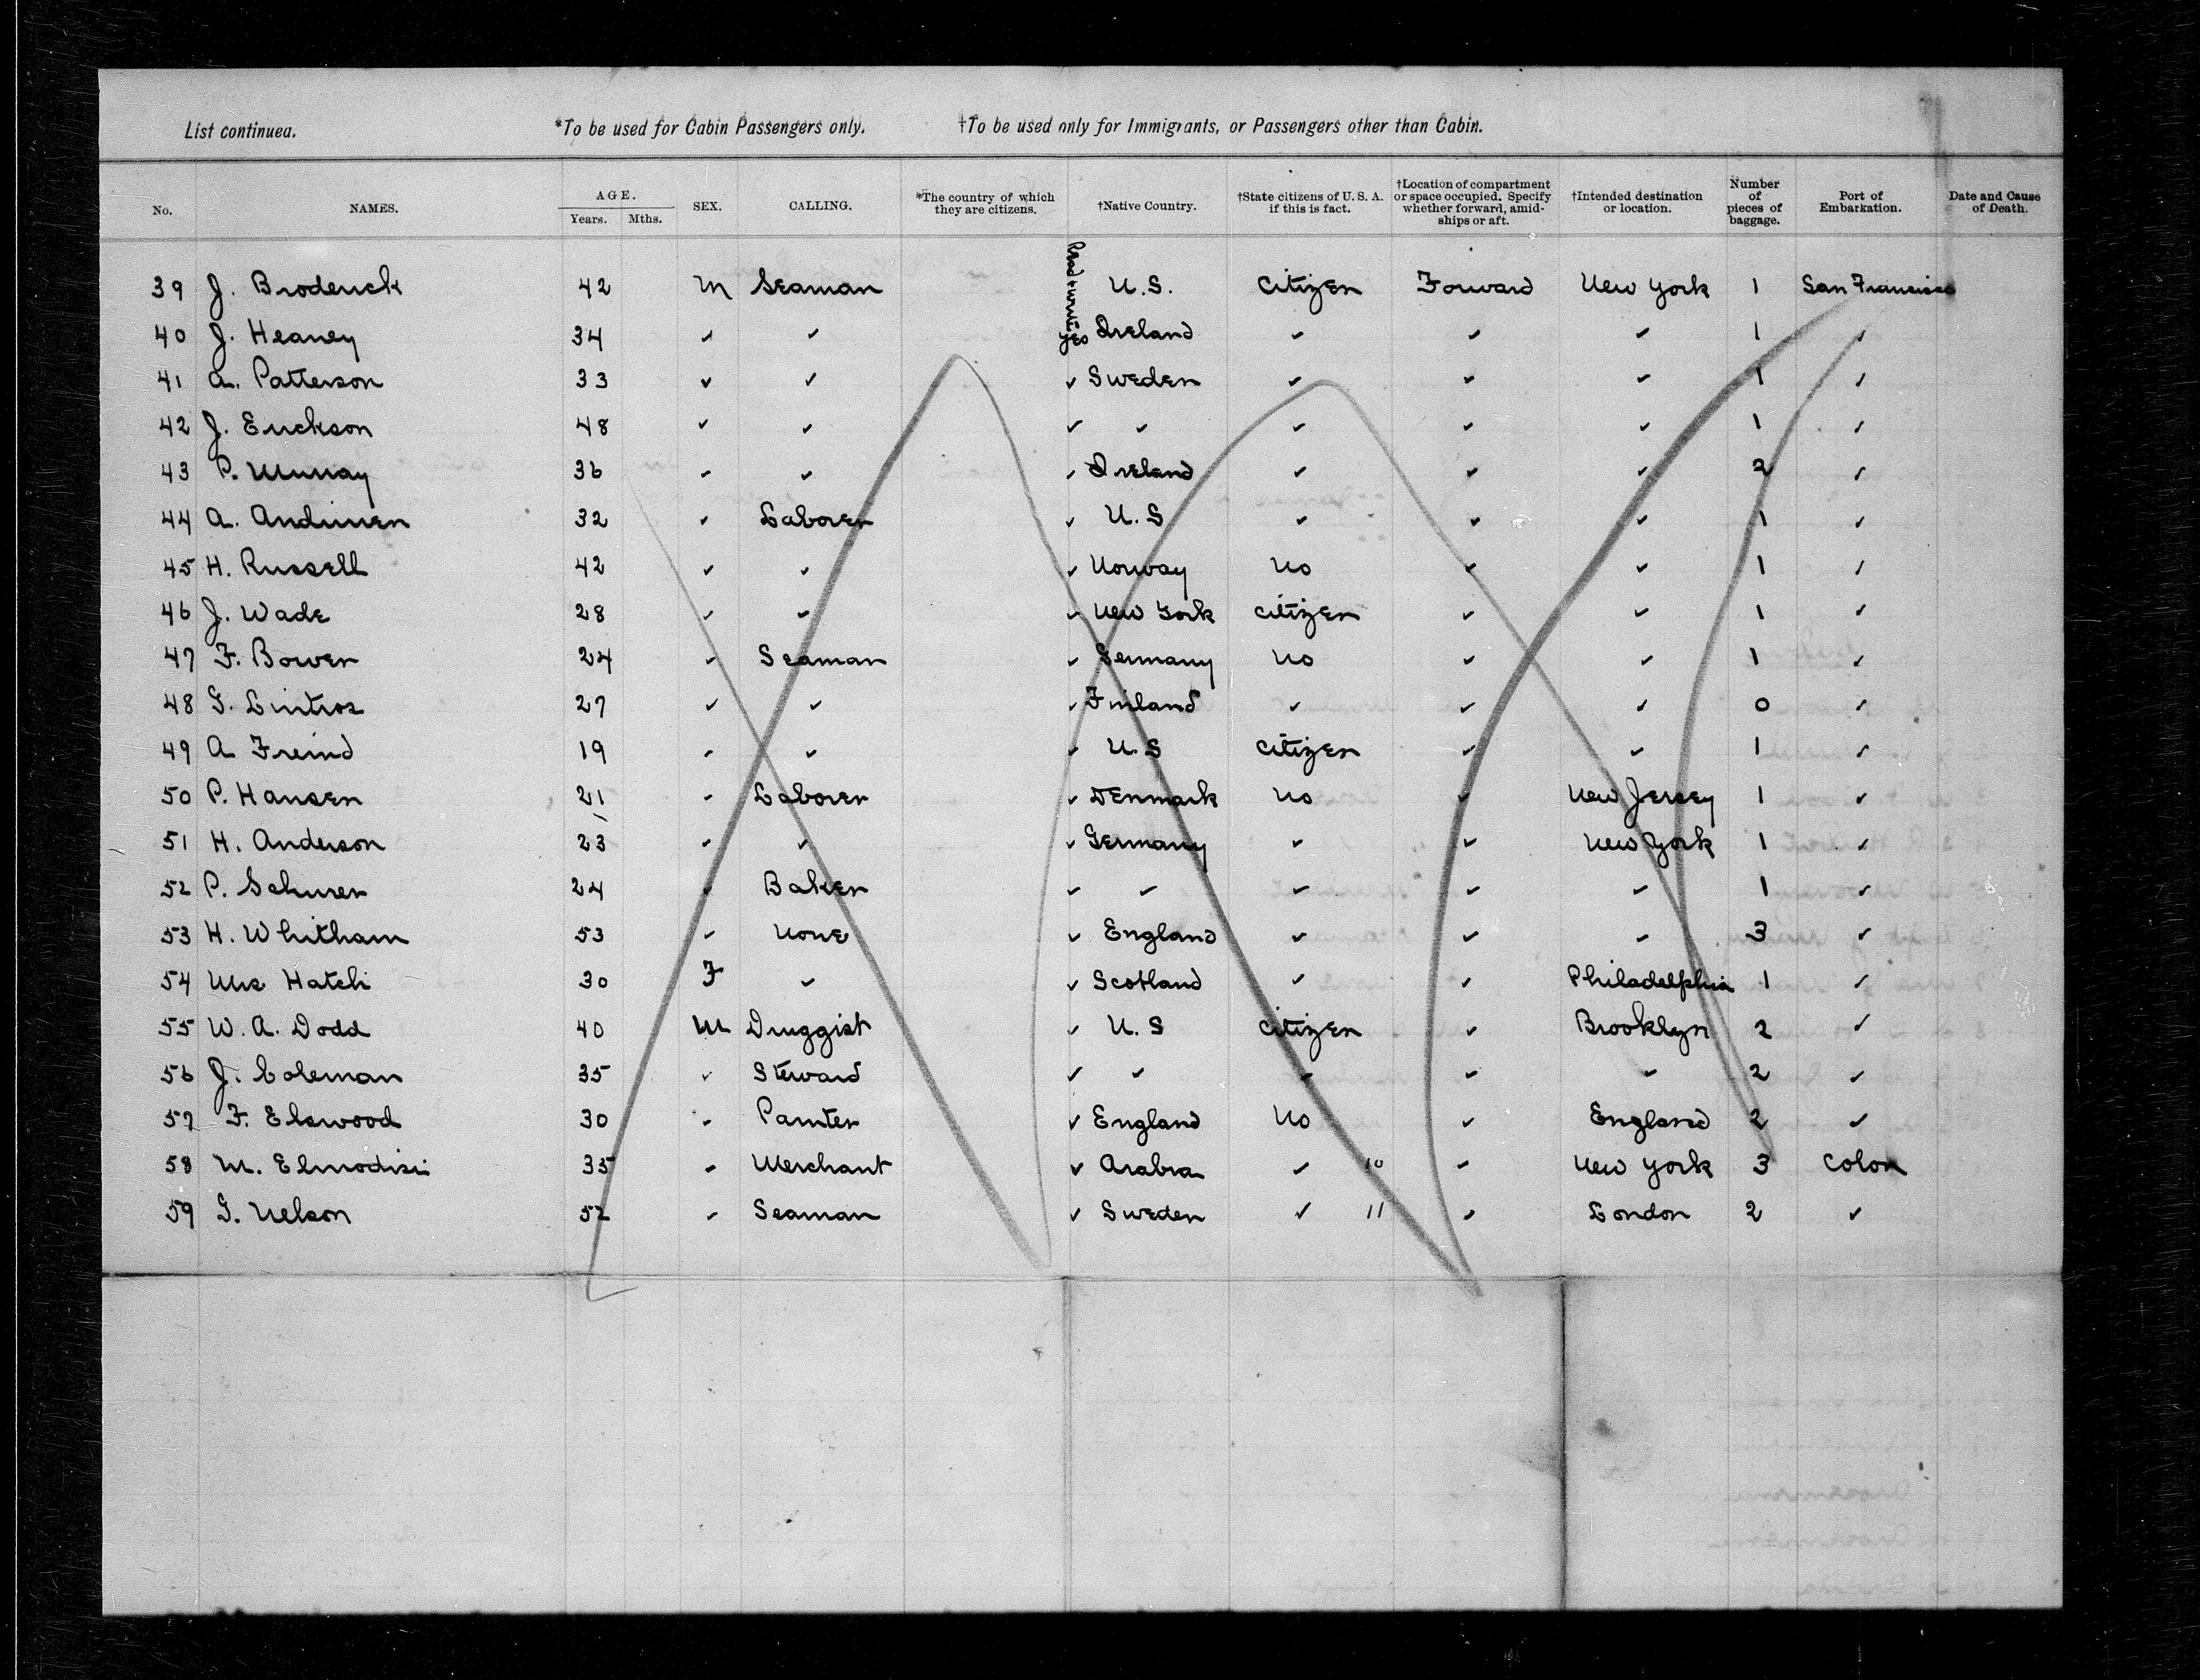 List continued. *To be used for Cabin Passengers only. †To be used only for Immigrants, or Passengers other than Cabin.
No. NAMES. AGE. Years. Mths. SEX. CALLING. *The country of which they are citizens. †Native Country. †State citizens of U. S. A. if this is fact. †Location of compartment or space occupied. Specify whether forward, amidships or aft. †Intended destination or location. Number of pieces of baggage. Port of Embarkation. Date and Cause of Death.
Read & write
39 J. Broderick 42 M Seaman U.S. Citizen Forward New York 1 San Francisco
40 J. Heaney 34 ✓ ✓ yes Ireland ✓ ✓ ✓ 1 ✓
41 A. Patterson 33 ✓ ✓ ✓ Sweden ✓ ✓ ✓ 1 ✓
42 J. Erickson 48 ✓ ✓ ✓ ✓ ✓ ✓ ✓ 1 ✓
43 P. Murray 36 ✓ ✓ ✓ Ireland ✓ ✓ ✓ 2 ✓
44 A. 32 ✓ Laborer ✓ U.S ✓ ✓ ✓ 1 ✓
45 H. Russell 42 ✓ ✓ ✓ Norway No ✓ ✓ 1 ✓
46 J. Wade 28 ✓ ✓ ✓ New York Citizen ✓ ✓ 1 ✓
47 F. Bower 24 ✓ Seaman ✓ Germany No ✓ ✓ 1 ✓
48 G. 27 ✓ ✓ ✓ Finland ✓ ✓ ✓ 0 ✓
49 A Freind 19 ✓ ✓ ✓ U.S Citizen ✓ ✓ 1 ✓
50 P. Hansen 21 ✓ Laborer ✓ Denmark No ✓ New Jersey 1 ✓
51 H. Anderson 23 ✓ ✓ ✓ Germany ✓ ✓ New York 1 ✓
52 P. Schurer 24 ✓ Baker ✓ ✓ ✓ ✓ ✓ 1 ✓
53 H. Whitham 53 ✓ None ✓ England ✓ ✓ ✓ 3 ✓
54 Mrs Hatch 30 F ✓ ✓ Scotland ✓ ✓ Philadelphia 1 ✓
55 W. A. Dodd 40 M Druggist ✓ U.S Citizen ✓ Brooklyn 2 ✓
56 J. Coleman 35 ✓ Steward ✓ ✓ ✓ ✓ ✓ 2 ✓
57 F. Elswood 30 ✓ Painter ✓ England No ✓ England 2 ✓
58 M. Elmodisi 35 ✓ Merchant ✓ Arabia ✓ 10 ✓ New York 3 Colon
59 G. Nelson 52 ✓ Seaman ✓ Sweden ✓ 11 ✓ London 2 ✓